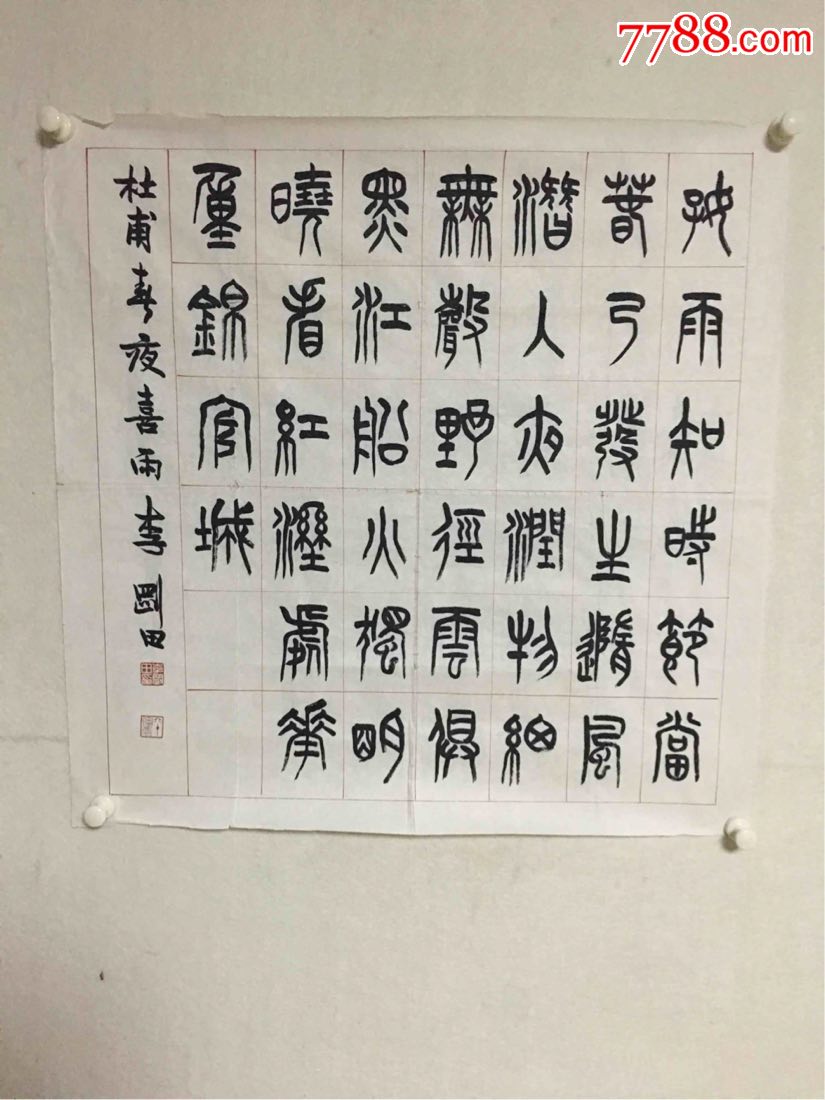 7788.com
好雨知時節當
春乃發生隨風
潛入夜潤物細
無聲野徑雲俱
黑江船火獨明
曉看紅溼處華
重錦官城
杜甫春夜喜雨李剛田